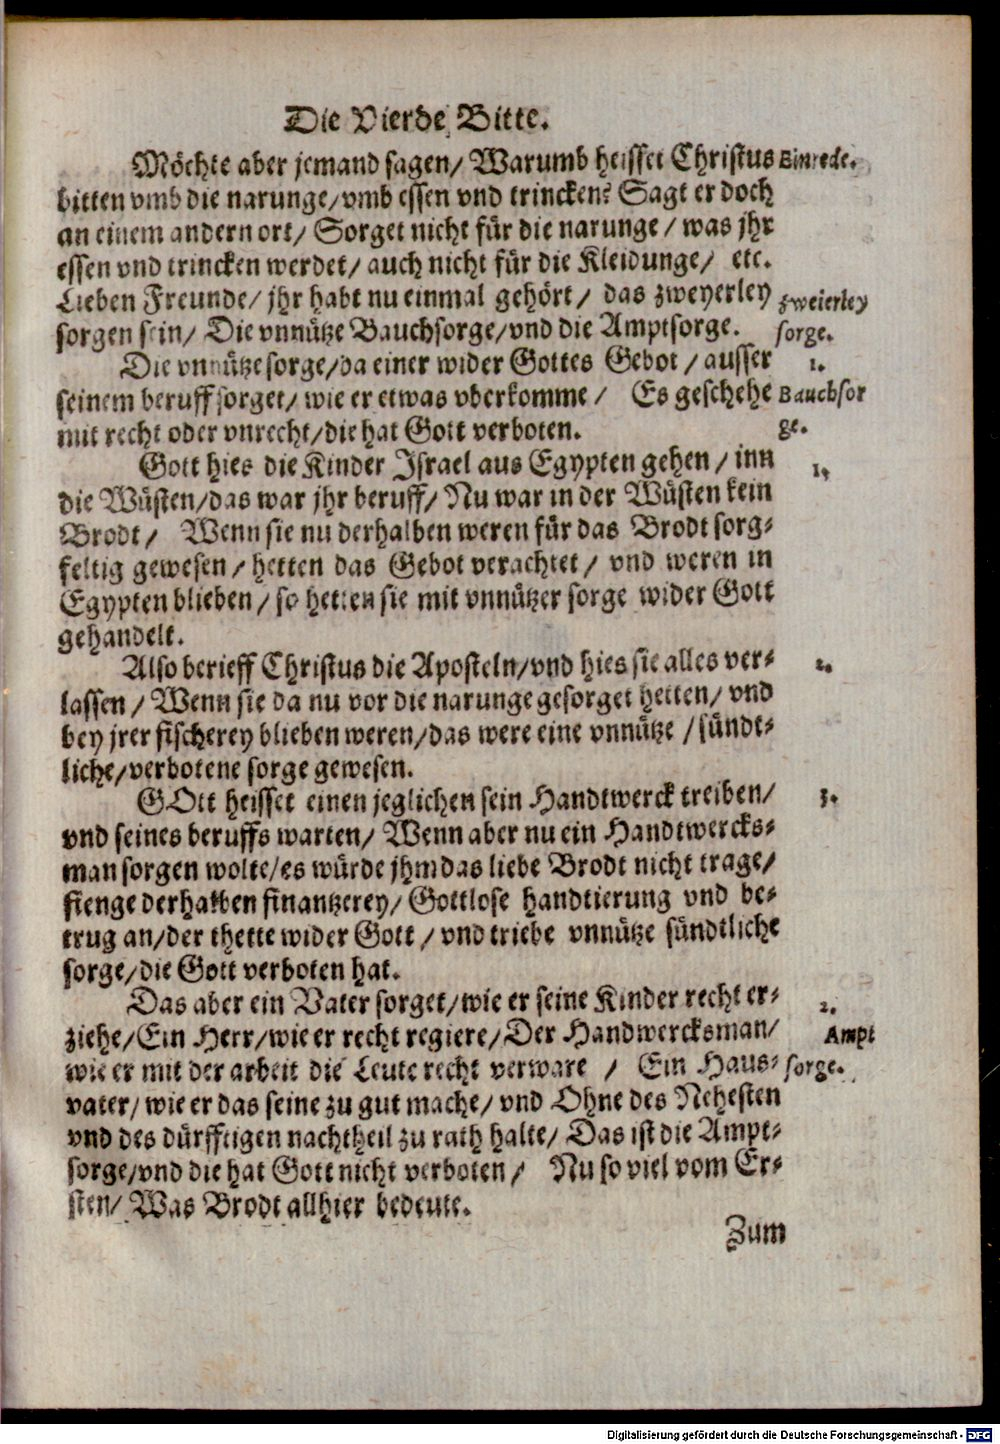 Die Vierde Bitte.
Möchte aber jemand sagen/ Warumb heisset Christus Einrede.
bitten vmb die narunge/vmb essen vnd trincken? Sagt er doch
an einem andern ort/ Sorget nicht für die narunge/ was jhr
essen vnd trincken werdet/ auch nicht für die Kleidunge/ etc.
Lieben Freunde/ jhr habt nu einmal gehört/ das zweyerley zweierley
sorgen sein/ Die vnnütze Bauchsorge/vnd die Amptsorge. sorge.
Die vnnütze sorge/da einer wider Gottes Gebot/ ausser 1.
seinem beruff sorget/ wie er etwas vberkomme/ Es geschehe Bauchsor
mit recht oder vnrecht/die hat Gott verboten. ge.
Gott hies die Kinder Israel aus Egypten gehen/ inn 1.
die Wüsten/das war jhr beruff/ Nu war in der Wüsten kein
Brodt/ Wenn sie nu derhalben weren für das Brodt sorg-
feltig gewesen/ hetten das Gebot verachtet/ vnd weren in
Egypten blieben/ so hetten sie mit vnnützer sorge wider Gott
gehandelt.
Also berieff Christus die Aposteln/vnd hies sie alles ver- 2.
lassen/ Wenn sie da nu vor die narunge gesorget hetten/ vnd
bey jrer fischerey blieben weren/das were eine vnnütze/ sündt-
liche/verbotene sorge gewesen.
GOtt heisset einen jeglichen sein Handtwerck treiben/ 3.
vnd seines beruffs warten/ Wenn aber nu ein Handtwercks-
man sorgen wolte/es würde jhm das liebe Brodt nicht trage/
fienge derhalben finantzerey/ Gottlose handtierung vnd be-
trug an/der thette wider Gott/ vnd triebe vnnütze sündtliche
sorge/die Gott verboten hat.
Das aber ein Vater sorget/wie er seine Kinder recht er- 2.
ziehe/Ein Herr/wie er recht regiere/Der Handwercksman/ Ampt
wie er mit der arbeit die Leute recht verware/ Ein Haus- sorge.
vater/ wie er das seine zu gut mache/ vnd Ohne des Nehesten
vnd des dürfftigen nachtheil zu rath halte/ Das ist die Ampt-
sorge/vnd die hat Gott nicht verboten/ Nu so viel vom Er-
sten/ Was Brodt allhier bedeute.
Zum
Digitalisierung gefördert durch die Deutsche Forschungsgemeinschaft - DFG